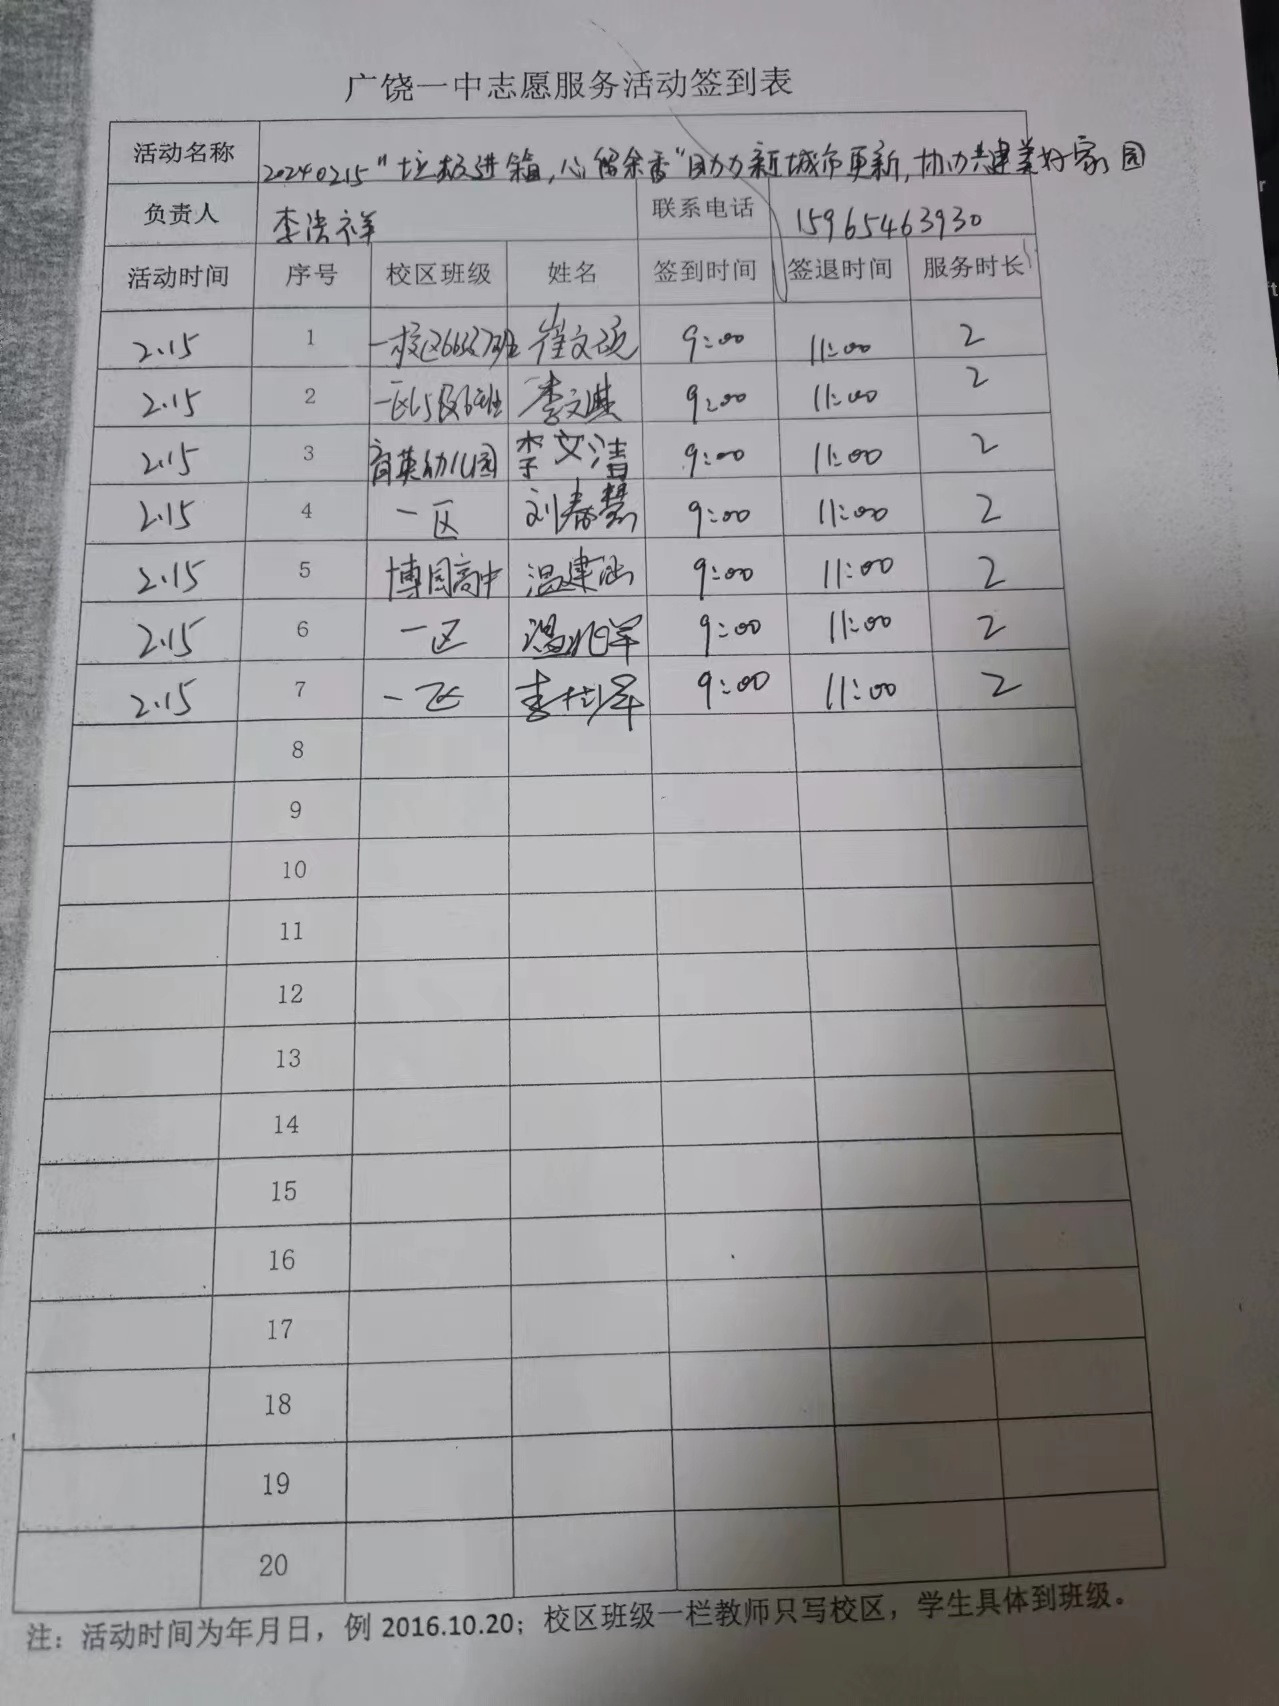 广饶一中志愿服务活动签到表
活动名称 20240215"垃圾进箱,心留余香"助力新城市更新,协力共建美好家园
负责人 李浩祥 联系电话 15965463930
活动时间 序号 校区班级 姓名 签到时间 签退时间 服务时长
2.15 1 一校区 崔文 9:00 11:00 2
2.15 2 一区 李文 9:00 11:00 2
2.15 3 育英幼儿园 李文清 9:00 11:00 2
2.15 4 一区 刘春慧 9:00 11:00 2
2.15 5 博同高中 温建 9:00 11:00 2
2.15 6 一区 温兆军 9:00 11:00 2
2.15 7 一区 李 军 9:00 11:00 2
8
9
10
11
12
13
14
15
16
17
18
19
20
注：活动时间为年月日，例 2016.10.20；校区班级一栏教师只写校区，学生具体到班级。